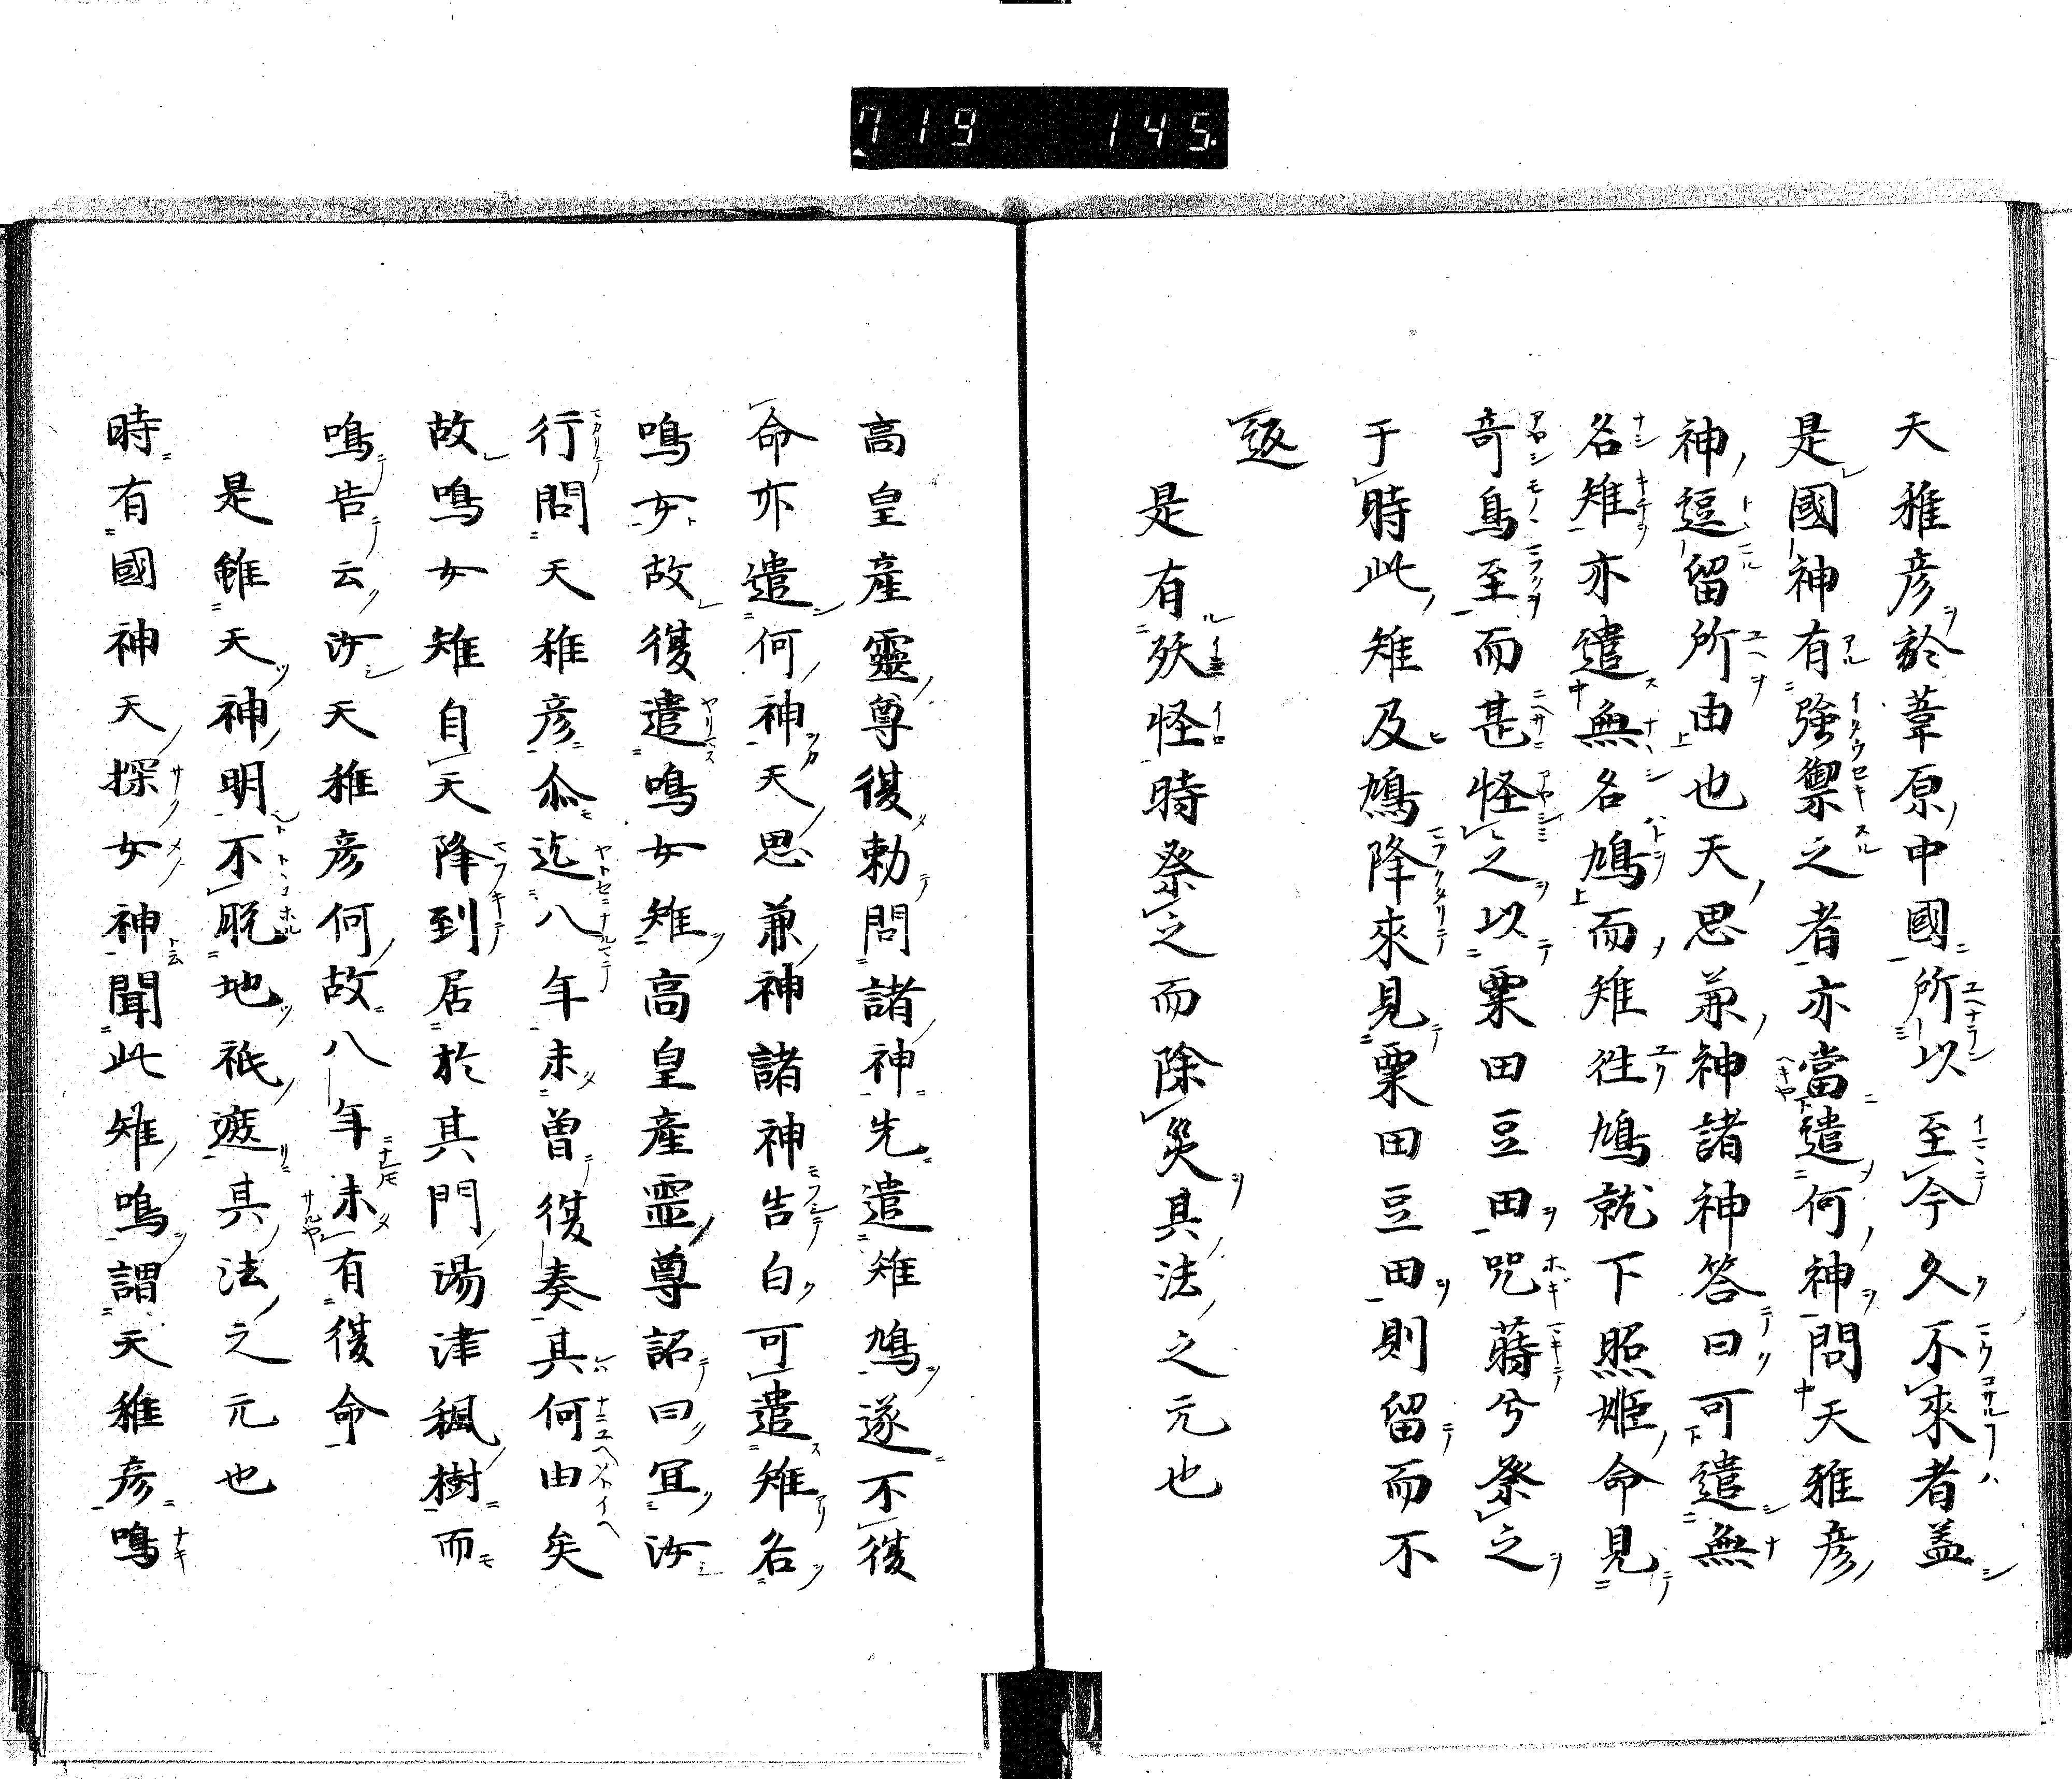 719 145.
天雅彦於葦原中國所以至今久不來者盖
是國神有強禦之者亦當遣何神問天雅彦
神逗留所由也天思兼神諸神答曰可遣無
名雉亦遣無名鳩而雉往鳩就下照姫命見
奇鳥至而甚怪之以粟田豆田咒蒔兮祭之
于時此雉及鳩降來見粟田豆田則留而不
返
是有殀怪時祭之而除災其法之元也
高皇產靈尊復勅問諸神先遣雉鳩遂不復
命亦遣何神天思兼神諸神告白可遣雉名
鳴女故復遣鳴女雉高皇產靈尊詔曰冝汝
行問天稚彦尒迄八年未曽復奏其何由矣
故鳴女雉自天降到居於其門湯津楓樹而
鳴告云汝天稚彦何故八年未有復命
是雖天神明不脱地祇遮其法之元也
時有國神天探女神聞此雉鳴謂天稚彦鳴